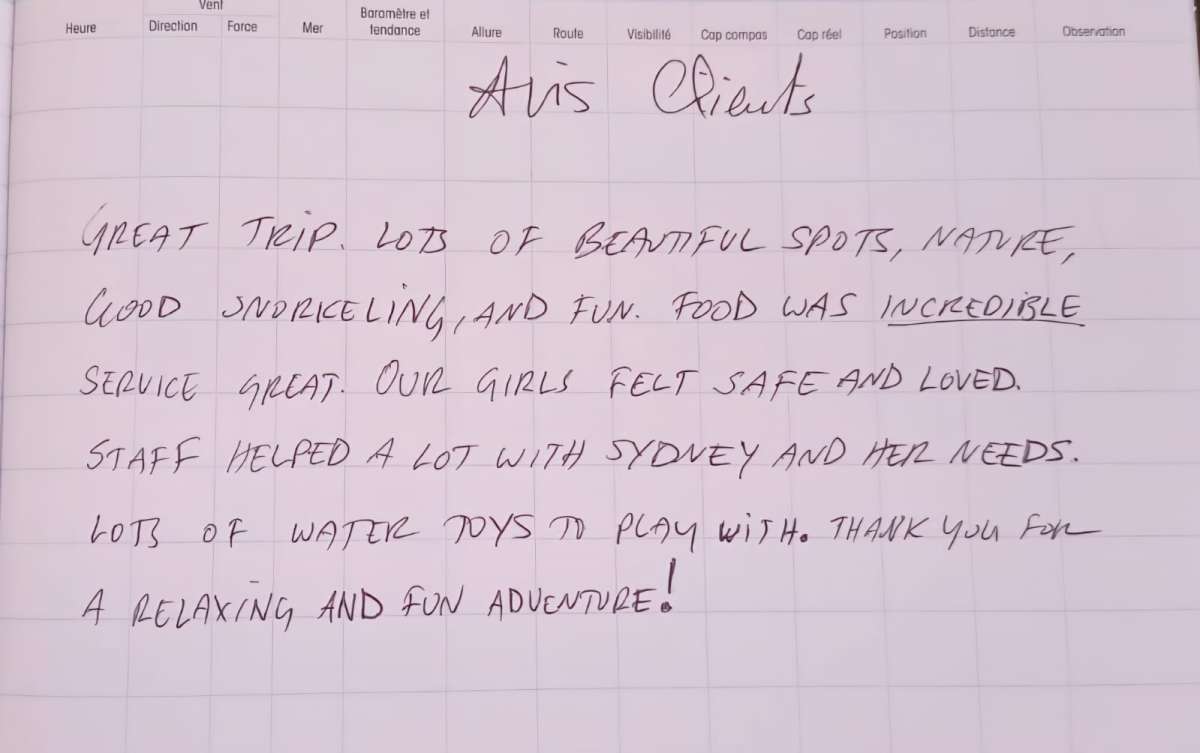 Vent
Heure Direction Force Mer Baromètre et tendance Allure Route Visibilité Cap compas Cap réel Position Distance Observation
Avis Clients
GREAT TRIP. LOTS OF BEAUTIFUL SPOTS, NATURE,
GOOD SNORKELING, AND FUN. FOOD WAS INCREDIBLE
SERVICE GREAT. OUR GIRLS FELT SAFE AND LOVED.
STAFF HELPED A LOT WITH SYDNEY AND HER NEEDS.
LOTS OF WATER TOYS TO PLAY WITH. THANK YOU FOR
A RELAXING AND FUN ADVENTURE!